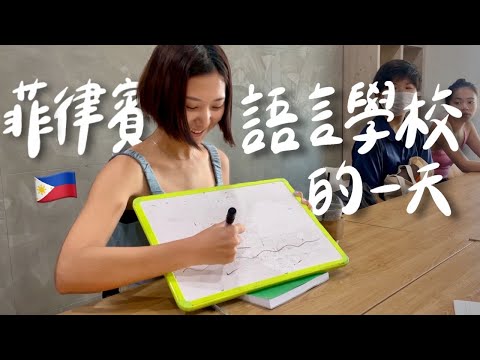 菲律賓 語言學校
的一天